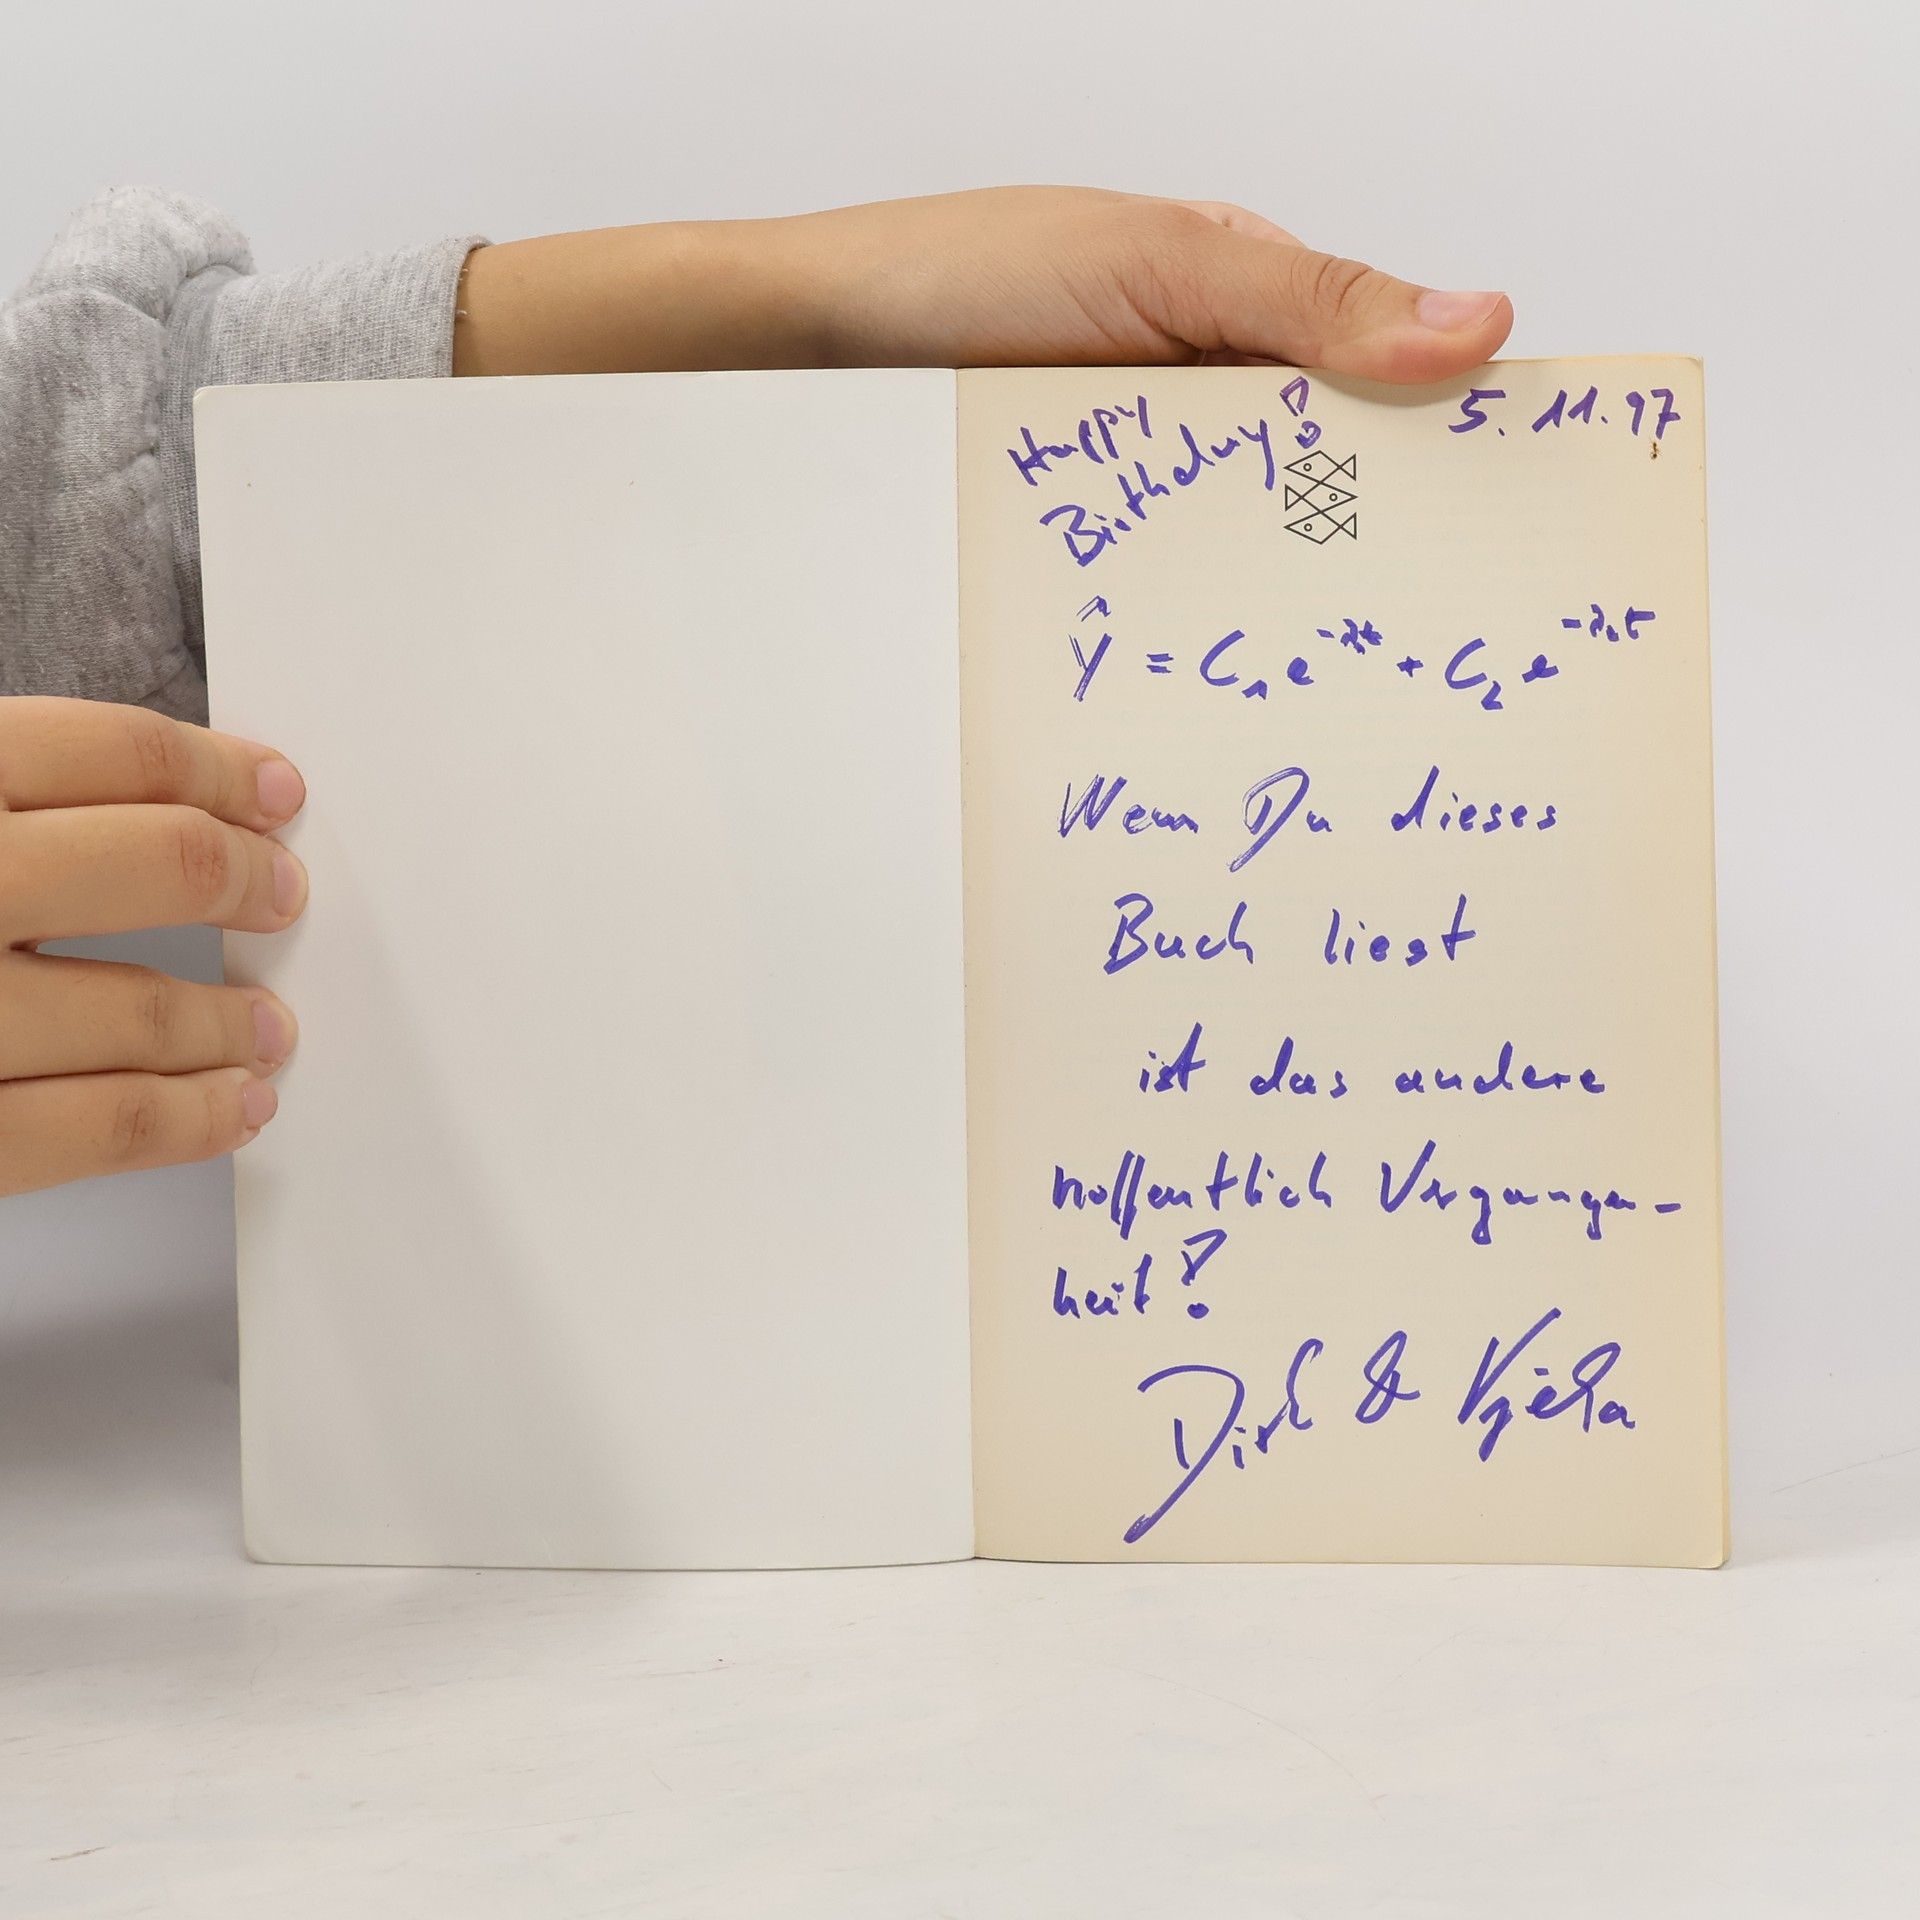 5. 11. 97
Happy
Birthday!
ŷ = C₁e^-λ₁t + C₂e^-λ₂t
Wenn Du dieses
Buch liest
ist das andere
hoffentlich Vergangen-
heit!
Dirk &